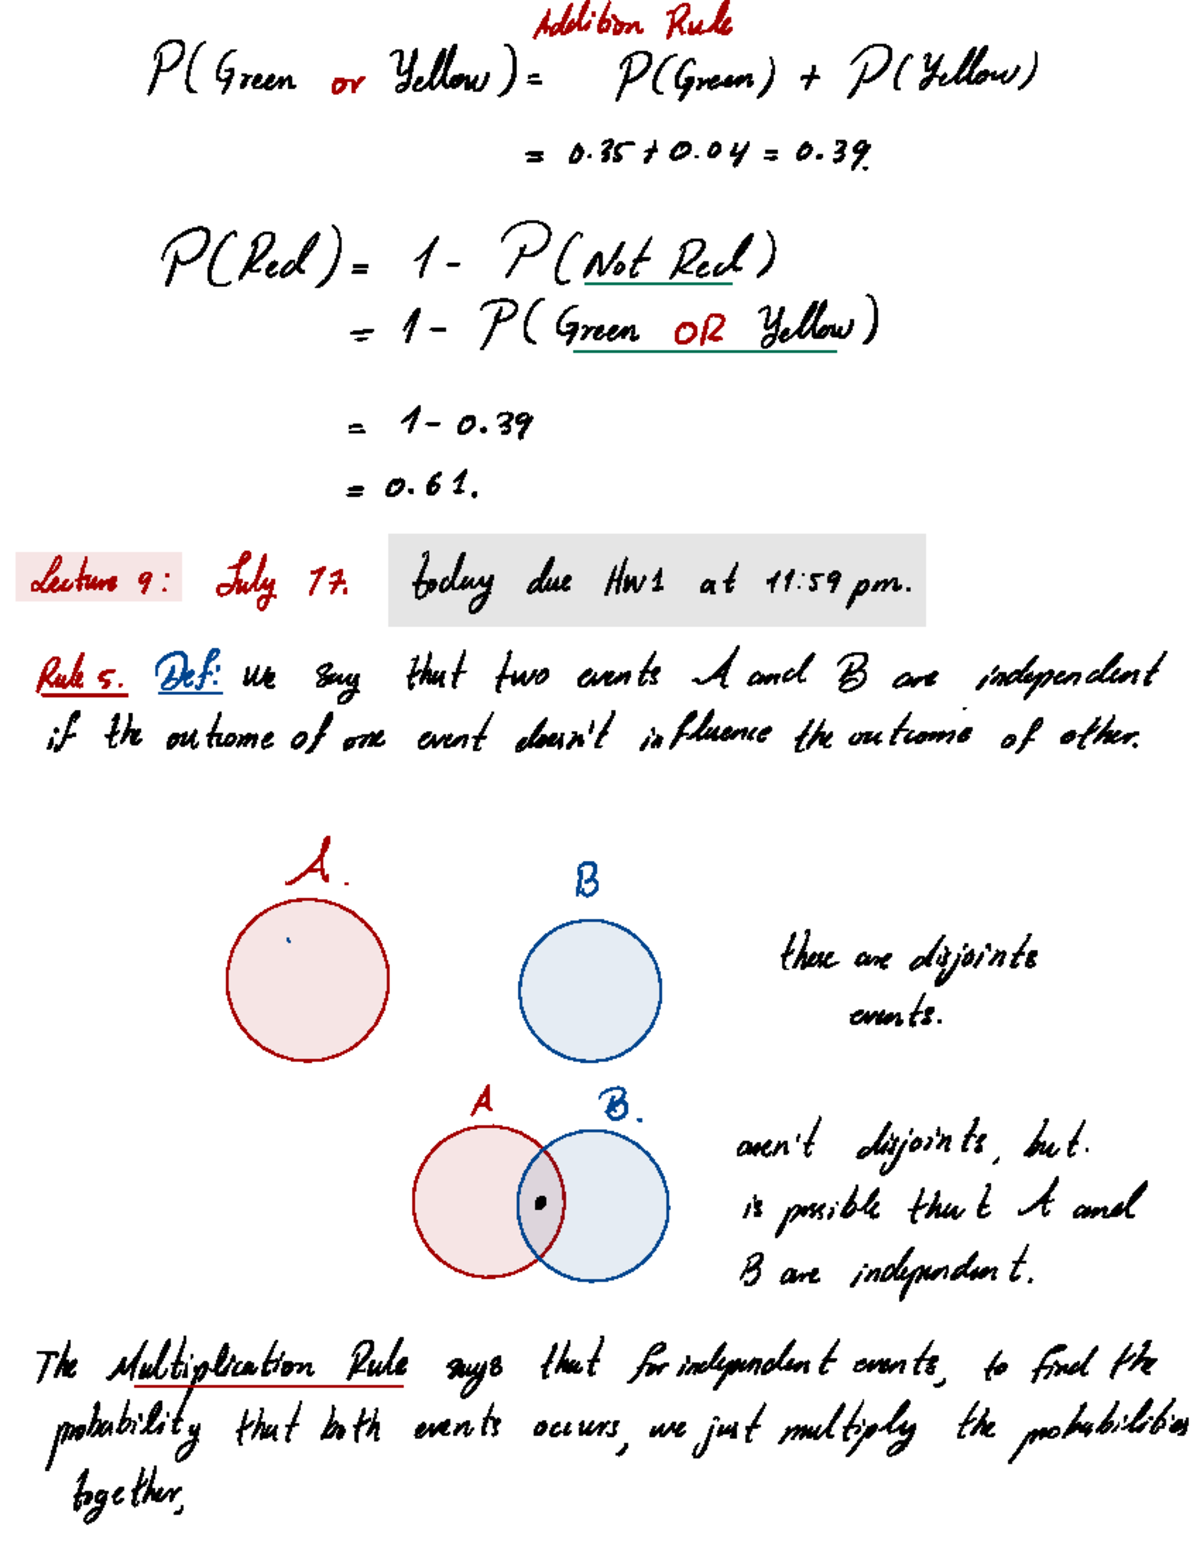 Addition Rule
P(Green or Yellow) = P(Green) + P(Yellow)
= 0.35 + 0.04 = 0.39.
P(Red) = 1 - P(Not Red)
= 1 - P(Green OR Yellow)
= 1 - 0.39
= 0.61.
Lecture 9: July 17. today due HW1 at 11:59 pm.
Rule 5. Def: we say that two events A and B are independent
if the outcome of one event doesn't influence the outcome of other.
A. B
these are disjoints
events.
A B.
aren't disjoints, but.
is possible that A and
B are independent.
The Multiplication Rule says that for independent events, to find the
probability that both events occurs, we just multiply the probabilities
together,